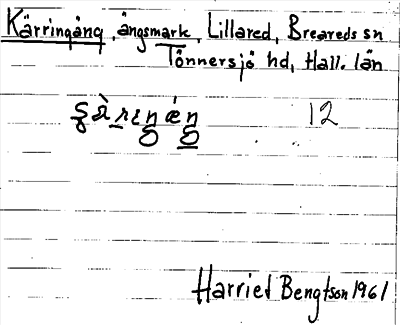 Kärringäng, ängsmark, Lillared, Breareds sn
Tönnersjö hd, Hall. län
12
Harriet Bengtson 1961